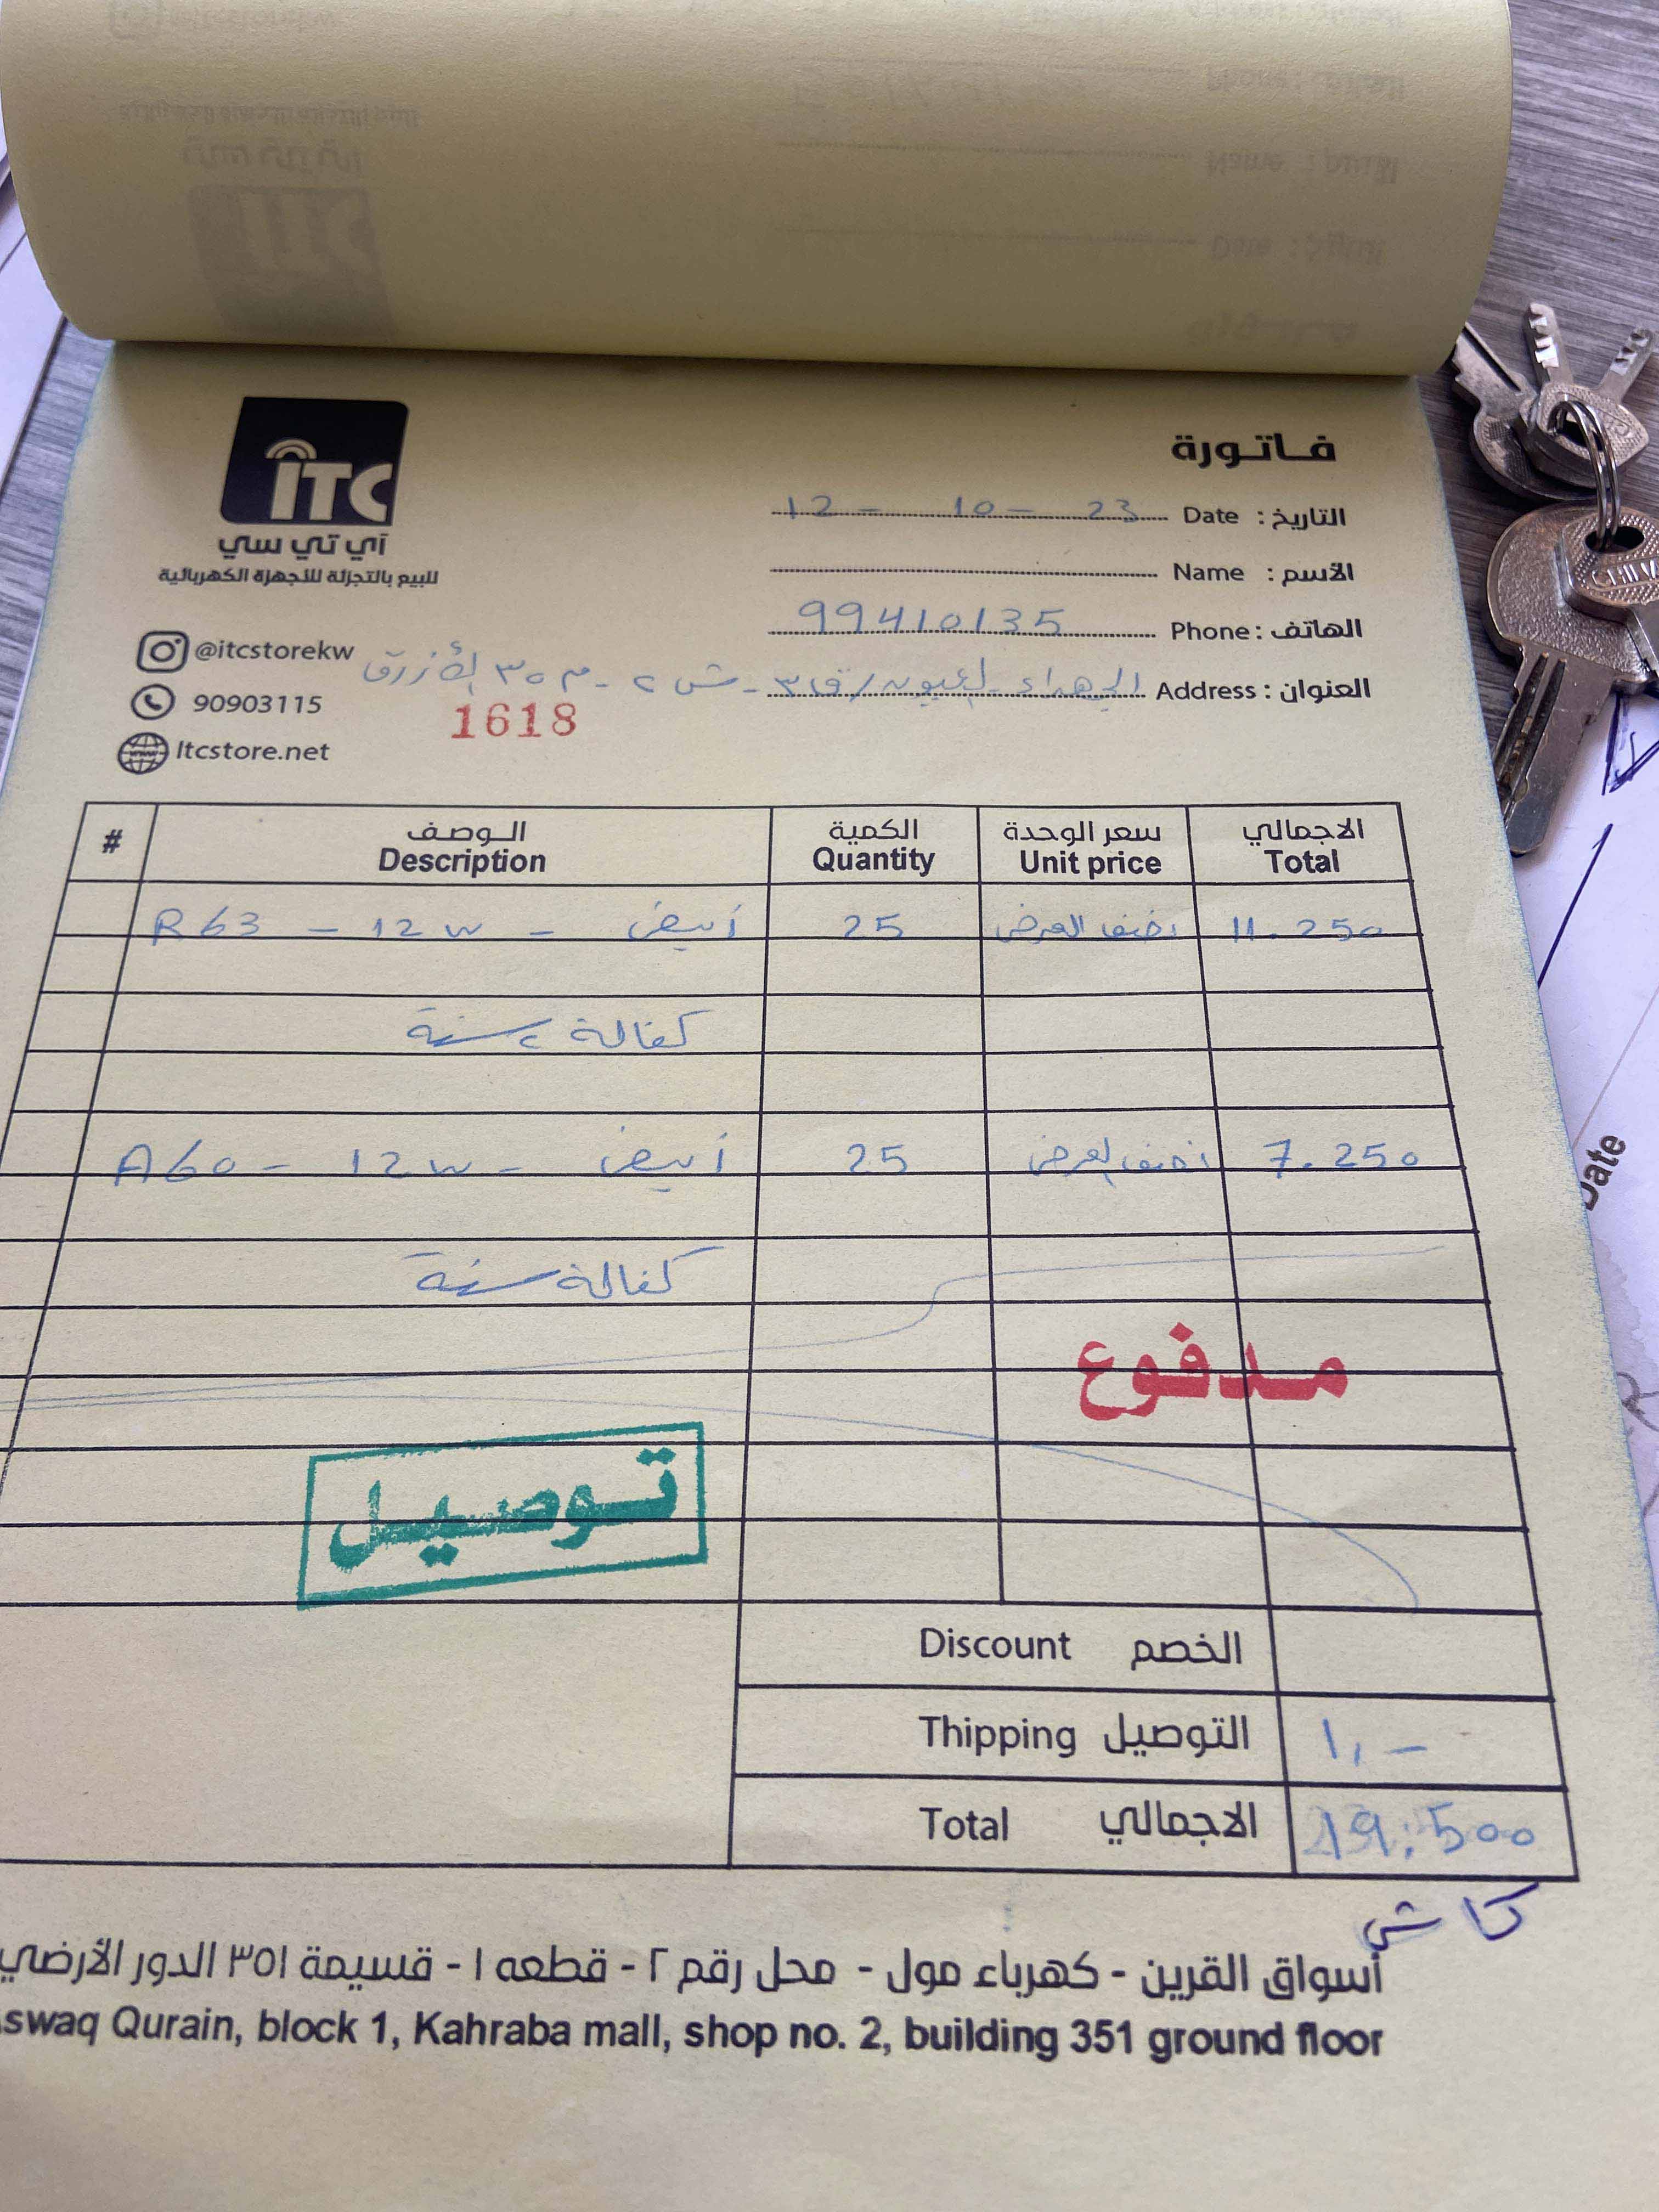 فاتورة
ITC
آي تي سي
للبيع بالتجزئة للأجهزة الكهربائية
@itcstorekw
90903115
Itcstore.net
التاريخ : Date 12 - 10 - 23
الأسم : Name
الهاتف : Phone 99410135
العنوان : Address الجهراء - العيون / ق ٣ - ش ٢ - م ٣٥ الأزرق
1618
# الوصف الكمية سعر الوحدة الاجمالي
Description Quantity Unit price Total
R63 - 12w - أبيض 25 العرض 11.250
كفالة ٢ سنة
A60 - 12w - أبيض 25 العرض 7.250
كفالة سنة
مدفوع
توصيل
Discount الخصم
Thipping التوصيل ١,-
Total الاجمالي 19.500
كاش
أسواق القرين - كهرباء مول - محل رقم ٢ - قطعه ١ - قسيمة ٣٥١ الدور الأرضي
swaq Qurain, block 1, Kahraba mall, shop no. 2, building 351 ground floor
Date